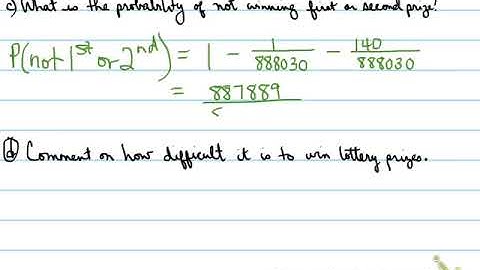 c) What is the probability of not winning first or second prize?
P(not 1st or 2nd) = 1 - 1/888030 - 140/888030
= 887889
d) Comment on how difficult it is to win lottery prizes.